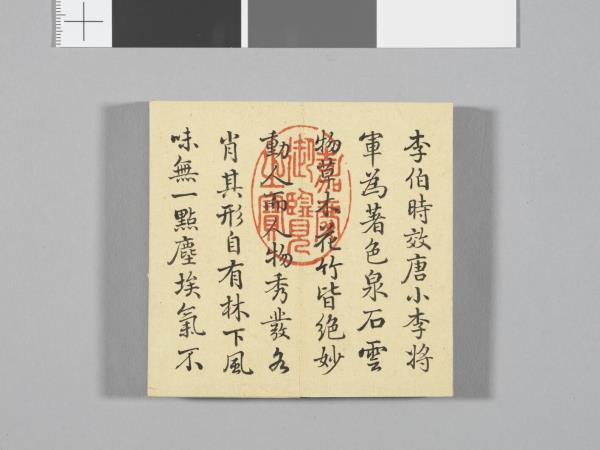 李伯時效唐小李將
軍為著色泉石雲
物草木花竹皆絕妙
動人而人物秀發各
肖其形自有林下風
味無一點塵埃氣不
嘉慶御覽之寶